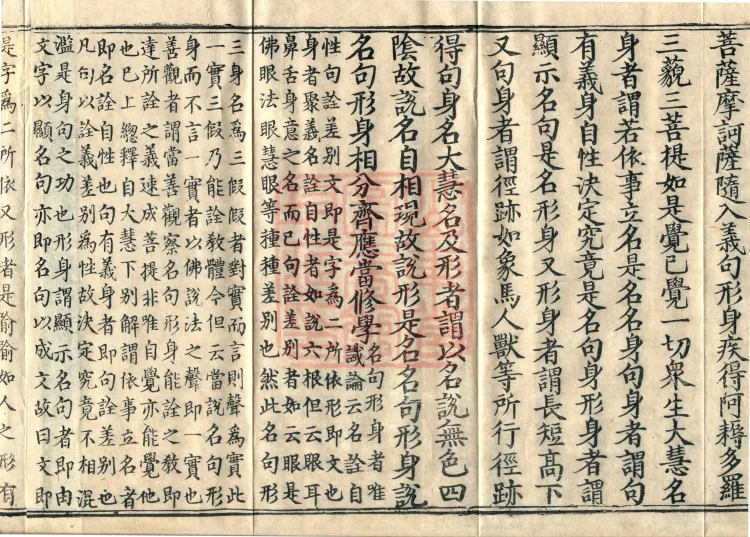 菩薩摩訶薩隨入義句形身疾得阿耨多羅
三藐三菩提如是覺已覺一切衆生大慧名
身者謂若依事立名是名名身句身者謂句
有義身自性決定究竟是名句身形身者謂
顯示名句是名形身又形身者謂長短高下
又句身者謂徑跡如象馬人獸等所行徑跡
得句身名大慧名及形者謂以名說無色四
陰故說名自相現故說形是名名句形身說
名句形身相分齊應當修學
名句形身者唯
識論云名詮自
性句詮差別文即是字為二所依形即文也
身者聚義名詮自性者如說六根但云眼耳
鼻舌身意之名而已句詮差別者如云眼是
佛眼法眼慧眼等種種差別也然此名句形
三身名為三假假者對實而言則聲為實此
一實三假乃能詮教體今但云當說名句形
身而不言一實者以佛說法之聲即一實也
善觀者謂當善觀察名句形身能詮之教即
達所詮之義速成菩提非唯自覺亦能覺他
也已上總釋自大慧下別解謂依事立名者
即名詮自性也句有義身者即句詮差別也
凡句以詮義差別為性故決定究竟不相混
濫是身句之功也形身謂顯示名句者即由
文字以顯名句亦即名句以成文故曰文即
是字為二所依又形者是喻喻如人之形有